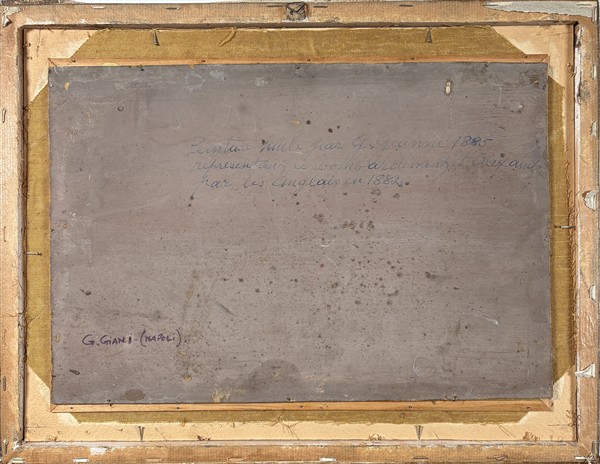 huile par 1885
representant le bombardement
par les Anglais en 1882
G. GIANI - (NAPOLI)